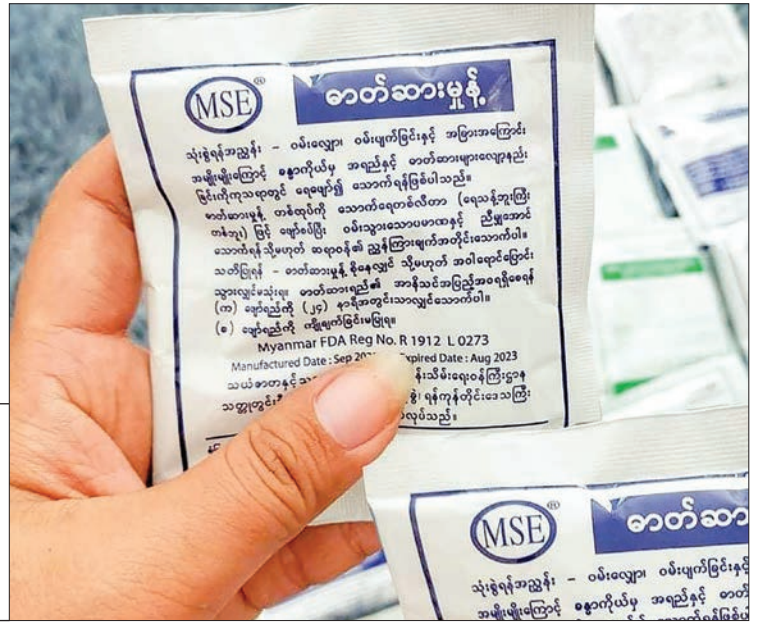 MSE®
ဓာတ်ဆားမှုန့်
သုံးစွဲရန်အညွှန်း – ဝမ်းလျှော၊ ဝမ်းပျက်ခြင်းနှင့် အခြားအကြောင်း
အမျိုးမျိုးကြောင့် ခန္ဓာကိုယ်မှ အရည်နှင့် ဓာတ်ဆားများလျော့နည်း
ခြင်းကိုကုသရာတွင် ရေဖျော်၍ သောက်ရန်ဖြစ်ပါသည်။
ဓာတ်ဆားမှုန့် တစ်ထုပ်ကို သောက်ရေတစ်လီတာ (ရေသန့်ဘူးကြီး
တစ်ဘူး) ဖြင့် ဖျော်စပ်ပြီး ဝမ်းသွားသောပမာဏနှင့် ညီမျှအောင်
သောက်ရန်သို့မဟုတ် ဆရာဝန်၏ ညွှန်ကြားချက်အတိုင်းသောက်ပါ။
သတိပြုရန် – ဓာတ်ဆားမှုန့် စိုနေလျှင် သို့မဟုတ် အဝါရောင်ပြောင်း
သွားလျှင်မသုံးရ။ ဓာတ်ဆားရည်၏ အာနိသင်အပြည့်အဝရရှိစေရန်
(က) ဖျော်ရည်ကို (၂၄) နာရီအတွင်းသာလျှင်သောက်ပါ။
(ခ) ဖျော်ရည်ကို ကျိုချက်ခြင်းမပြုရ။
Myanmar FDA Reg No. R 1912 L 0273
Manufactured Date : Sep Expired Date : Aug 2023
သယံဇာတနှင့် န်းသိမ်းရေးဝန်ကြီးဌာန
သတ္တုတွင်း ခွဲ၊ ရန်ကုန်တိုင်းဒေသကြီး
လုပ်သည်။
MSE®
ဓာတ်ဆာ
သုံးစွဲရန်အညွှန်း – ဝမ်းလျှော၊ ဝမ်းပျက်ခြင်းနှင့်
အမျိုးမျိုးကြောင့် ခန္ဓာကိုယ်မှ အရည်နှင့် ဓာတ်